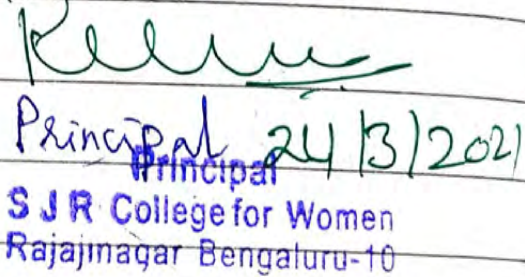 Principal 24/3/2021
Principal
S J R College for Women
Rajajinagar Bengaluru-10